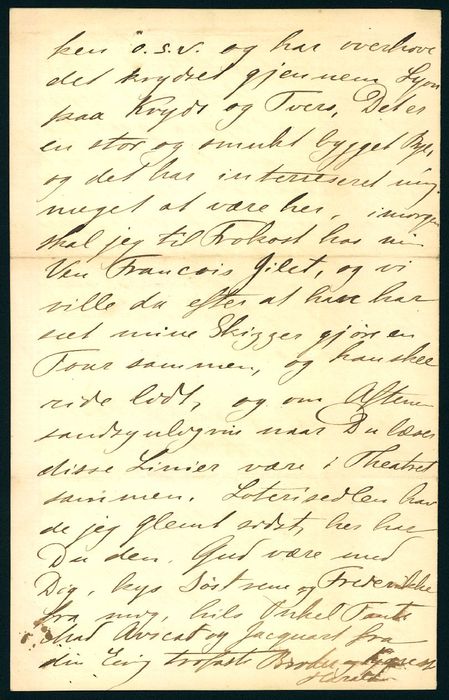 ken o.s.v. og har overhove
det krydset gjennem Lyon
paa Kryds og Tvers, Det er
en stor og smukt bygget By,
og det har interreseret mig
meget at være her, imorgen
skal jeg til Frokost hos min
Ven Francois Gilet, og vi
ville da efter at han har
set mine Skizzer gjøre en
Tour sammen, og han skal
og om Aftenen
sandsynligvis naar Du læser
disse Linier være i Theatret
sammen. Loterisedlen hav
de jeg glemt sidst, her har
Du den. Gud være med
Dig, kys Søstrene og Frederikke
fra mig, hils Onkel Tante
og Jacquart fra
din Evig trofaste Broder og